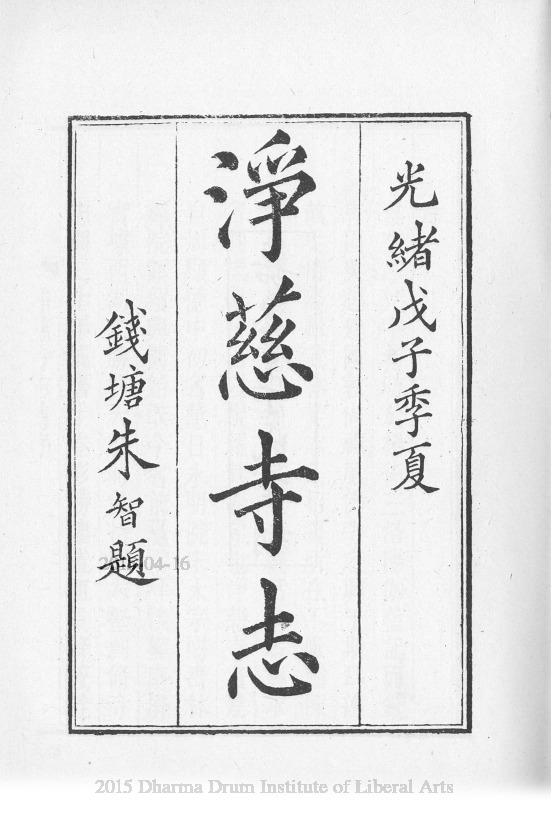 光緒戊子季夏
淨慈寺志
錢塘朱智題
04-16
2015 Dharma Drum Institute of Liberal Arts